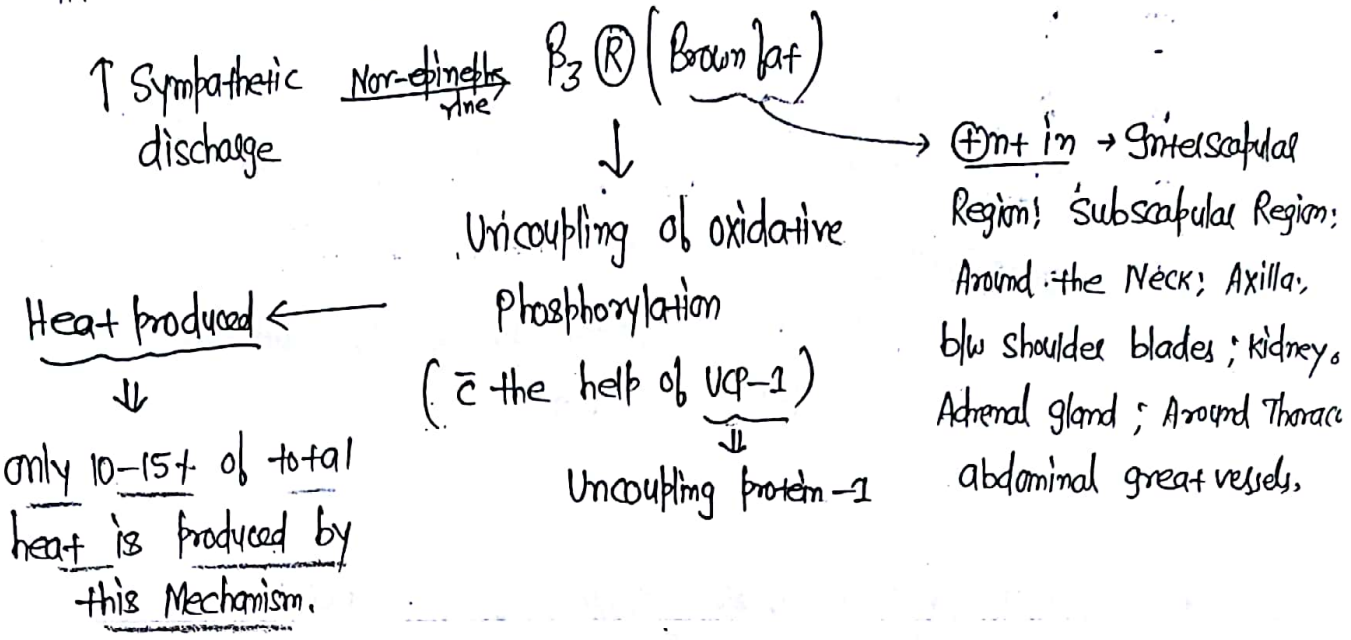 ↑ Sympathetic
discharge
Nor-epineph
rine
β3 Ⓡ (Brown fat)
Uncoupling of oxidative
Phosphorylation
(c̄ the help of UCP-1)
Uncoupling protein-1
Heat produced
only 10-15% of total
heat is produced by
this Mechanism.
⊕nt in → Interscapular
Region; Subscapular Region;
Around the Neck; Axilla;
b/w shoulder blades; kidney,
Adrenal gland; Around Thorac
abdominal great vessels,